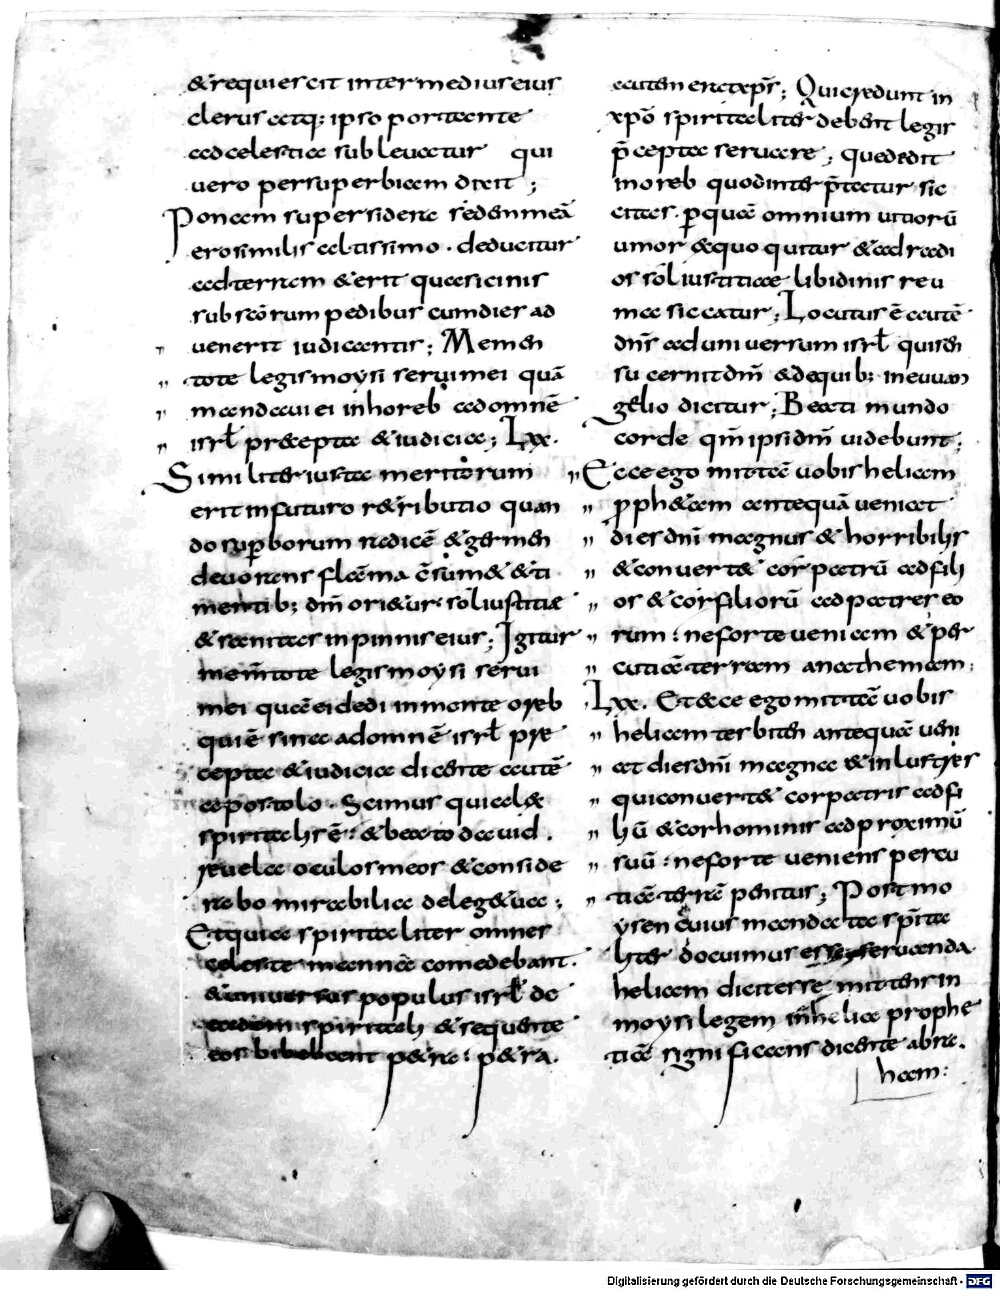 & requiescit inter medius eius
clerus atq; ipso portante
ad celestia subleuatur qui
uero per superbiam dicit ;
Ponam super sidera sedem meā
ero similis altissimo . deducitur
ad terram & erit quasi cinis
sub scōrum pedibus cum dies ad
uenerit iudicantis ; Memen
tote legis moysi serui mei quā
mandaui ei in horeb ad omnē
isrł praecepta & iudicia ; Lxx.
Similiter iusta meritorum
erit in futuro r&ributio quan
do supborum radicē & germen
deuorans flāma cōsum& & ti
mentib; dm̄ ori&ur sol iustitiae
& sanitas in pinnis eius ; Igitur
mem̄tote legis moysi serui
mei quā ei dedi in monte oreb
qui ē sina ad omnē isrł pre
cepta & iudicia dicente autē
apostolo . Scimus quia lex
spiritalis ē : & beato dauid .
reuela oculos meos & conside
rabo mirabilia de lege tua ;
Et quia spiritaliter omnes
celeste manna comedebant .
& uniuersus populus isrł de
spiritali & sequente
eos bibebant p&ra : p&ra .
autem erat xps̄ ; Qui credunt in
xpō spiritaliter debent legis
p̄cepta seruare ; quę dedit
in oreb quod interp̄tatur sic
citas . p quā omnium uitiorū
umor & quo quitur & ad radi
os solis iustitiae libidinis reu
ma siccatur ; Locutus ē autē
dn̄s ad uniuersum isrł qui sen
su cernit dm̄ & de quib; in euuan
gelio dicitur ; Beati mundo
corde qm̄ ipsi dm̄ uidebunt ;
Ecce ego mittā uobis heliam
proph&am antequā ueniat
dies dn̄i magnus & horribilis
& conuert& cor patrū ad fili
os & cor filiorū ad patres eo
rum : ne forte ueniam & per
cutiā terram anathemam ;
Lxx. Et ecce ego mittā uobis
heliam tesbiten antequā ueni
at dies dn̄i magna & inlustris
qui conuert& cor patris ad fi
liū & cor hominis ad proximū
suū : ne forte ueniens percu
tiā terrā penitus ; Post mo
ysen cuius mandata spirita
liter docuimus esse seruanda
heliam dicit esse mittens in
moysi legem in helia prophe
tiā significans dicente abra.
ham :
Digitalisierung gefördert durch die Deutsche Forschungsgemeinschaft - DFG